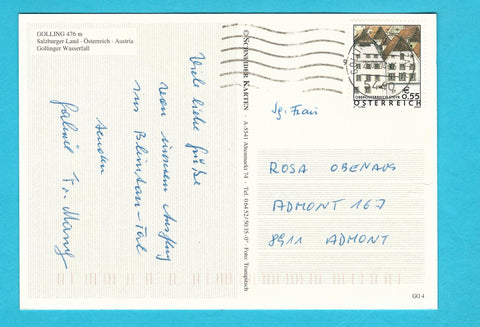 GOLLING 476 m
Salzburger Land - Österreich - Austria
Gollinger Wasserfall
Viele liebe Grüße
von unserem Ausflug
ins
senden
© SCHNEIDER KARTEN A 5541 Altenmarkt 74 Tel. 06452/5035-0* Foto: Trumpitsch
€ 0.55
ÖSTERREICH
Sg. Frau
ROSA OBENAUS
ADMONT 167
8911 ADMONT
GO 4